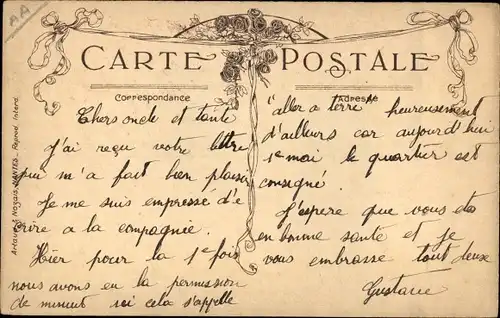 AA
CARTE POSTALE
Correspondance
Adresse
Chers oncle et tante
J'ai reçu votre lettre
qui m'a fait bien plaisir
Je me suis empressé d'é
crire a la compagnie.
Hier pour la 1e fois
nous avons eu la permission
de minuit ici cela s'appelle
"aller a terre" heureusement
d'ailleurs car aujourd'hui
1er mai le quartier est
consigné.
J'espere que vous etes
en bonne sante et je
vous embrasse tout deux
Gustave
Artaud & Nozais, NANTES. Reprod. Interd.